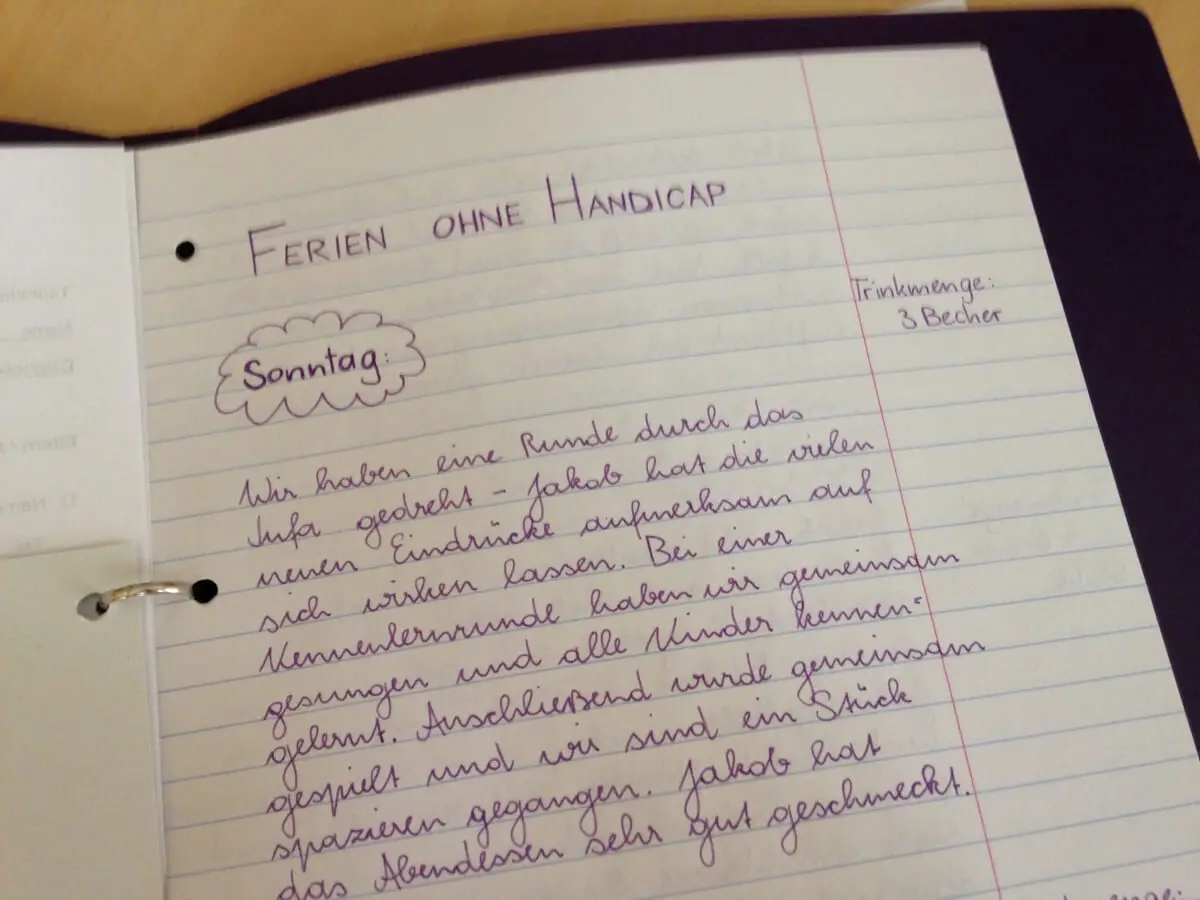 FERIEN OHNE HANDICAP
Trinkmenge:
3 Becher
Sonntag:
Wir haben eine Runde durch das
Jufa gedreht – Jakob hat die vielen
neuen Eindrücke aufmerksam auf
sich wirken lassen. Bei einer
Kennenlernrunde haben wir gemeinsam
gesungen und alle Kinder kennen-
gelernt. Anschließend wurde gemeinsam
gespielt und wir sind ein Stück
spazieren gegangen. Jakob hat
das Abendessen sehr gut geschmeckt.